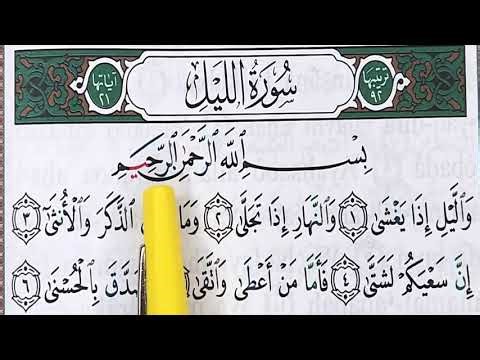 ترتيبها ٩٢ سُورَةُ اللَّيْلِ آياتها ٢١
بِسْمِ ٱللَّهِ ٱلرَّحْمَٰنِ ٱلرَّحِيمِ
وَٱلَّيْلِ إِذَا يَغْشَىٰ ١ وَٱلنَّهَارِ إِذَا تَجَلَّىٰ ٢ وَمَا ٱلذَّكَرَ وَٱلْأُنثَىٰٓ ٣
إِنَّ سَعْيَكُمْ لَشَتَّىٰ ٤ فَأَمَّا مَنْ أَعْطَىٰ وَٱتَّقَىٰ صَدَّقَ بِٱلْحُسْنَىٰ ٦